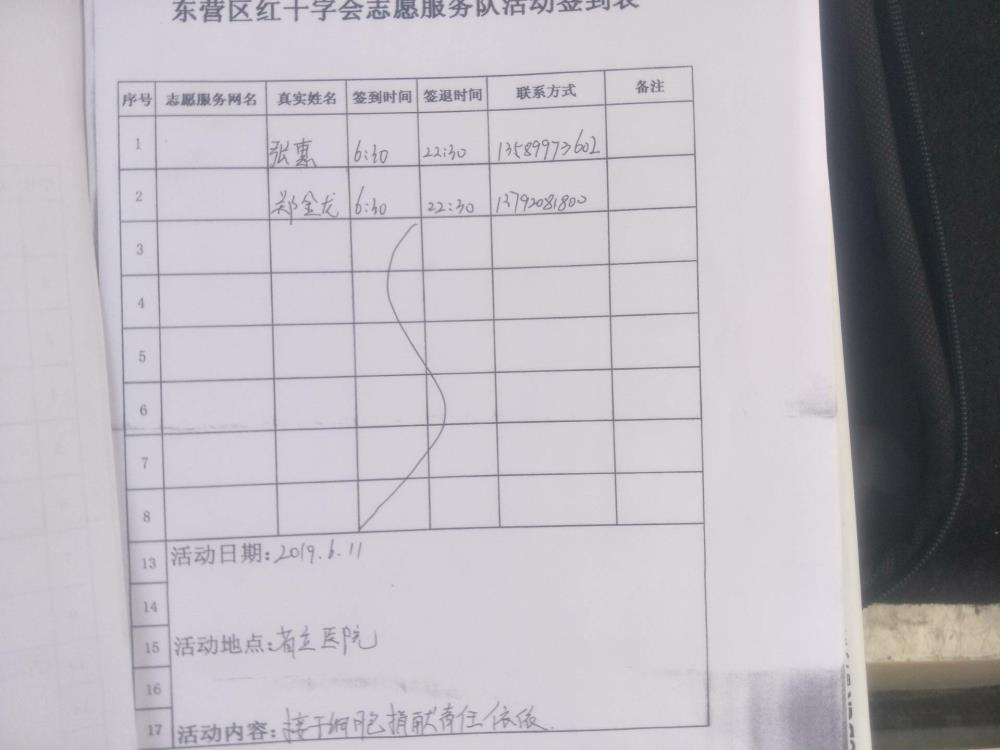 东营区红十字会志愿服务队活动签到表
序号 志愿服务网名 真实姓名 签到时间 签退时间 联系方式 备注
1 张惠 6:30 22:30 13589973602
2 郑金龙 6:30 22:30 13792081800
3
4
5
6
7
8
13 活动日期:2019.6.11
14
15 活动地点:省立医院
16
17 活动内容:接干细胞捐献者任依依